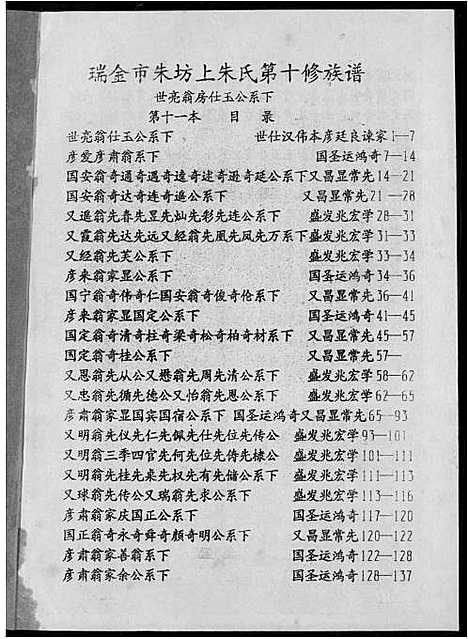 瑞金市朱坊上朱氏第十修族谱
世亮翁房仕玉公系下
第十一本 目录
世亮翁仕玉公系下 世仕汉伟本彦廷良谏家1—7
彦爱彦肃翁系下 国圣运鸿奇7—14
国安翁奇通奇遇奇逵奇述奇逊奇延公系下又昌显常先14—21
国安翁奇达奇连奇遥公系下 又昌显常先21—28
又遥翁先春先昱先灿先彩先连公系下 盛发兆宏学28—31
又霞翁先达先远又经翁先凰先凤先万系下盛发兆宏学31—33
又经翁先芙公系下 盛发兆宏学33—34
彦来翁家显公系下 国圣运鸿奇34—36
国宁翁奇伟奇仁国安翁奇俊奇伦系下 又昌显常先36—41
彦来翁家显国定公系下 国圣运鸿奇41—45
国定翁奇清奇柱奇梁奇松奇柏奇材系下 又昌显常先45—57
国定翁奇桂公系下 又昌显常先57—
又恩翁先从公又懋翁先周先清公系下 盛发兆宏学58—62
又忠翁先循先德公又怡翁先恩公系下 盛发兆宏学62—65
彦肃翁家显国宾国宿公系下 国圣运鸿奇又昌显常先65—93
又明翁先仪先仁先佩先仕先位先传公 盛发兆宏学93—101
又明翁三季四官先何先位先俦先棣公 盛发兆宏学101—111
又明翁先桂先桌先权先有先储公系下 盛发兆宏学111—113
又球翁先传公又瑞翁先求公系下 盛发兆宏学113—116
彦肃翁家庆国正公系下 国圣运鸿奇117—120
国正翁奇永奇舜奇颜奇明公系下 又昌显常先120—122
彦肃翁家善翁系下 国圣运鸿奇122—128
彦肃翁家余公系下 国圣运鸿奇128—137